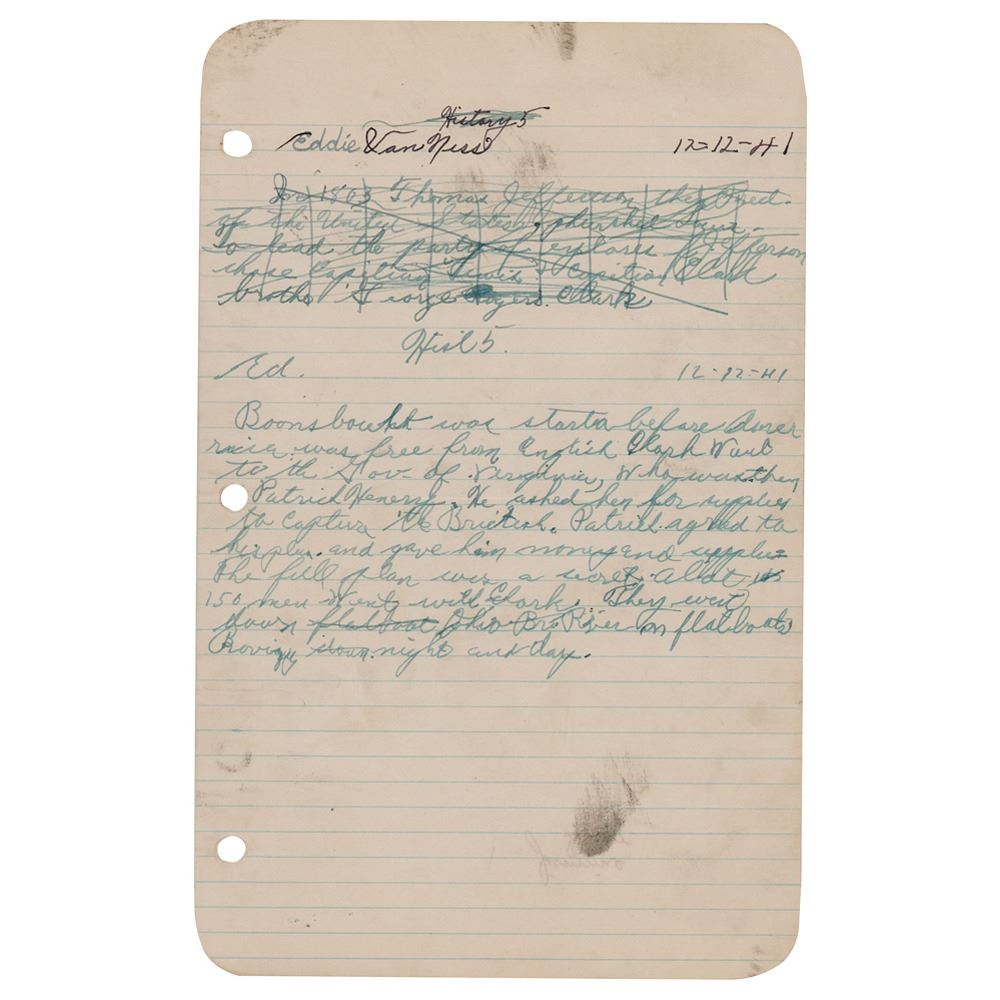 History 5
Eddie Van Ness 12-12-41
In 1803 Thomas Jefferson the Pred.
of the United States,
To lead the party of Jefferson
chose Captian Lewis & Captian Clark
brother George Rogers Clark
Hist 5.
Ed. 12-12-41
was starte before Amer
rica was free from English Clark Went
to th Gov of Virginia, Who was then
Patrick Henerry. He asked hen for supplies
to Captive the Brietish. Patrick agred to
his plan and gave him money and supplies
The full plan was a secret
150 men Went with Clark. They went
down flatboat Ohio River in flatboats
night and day.